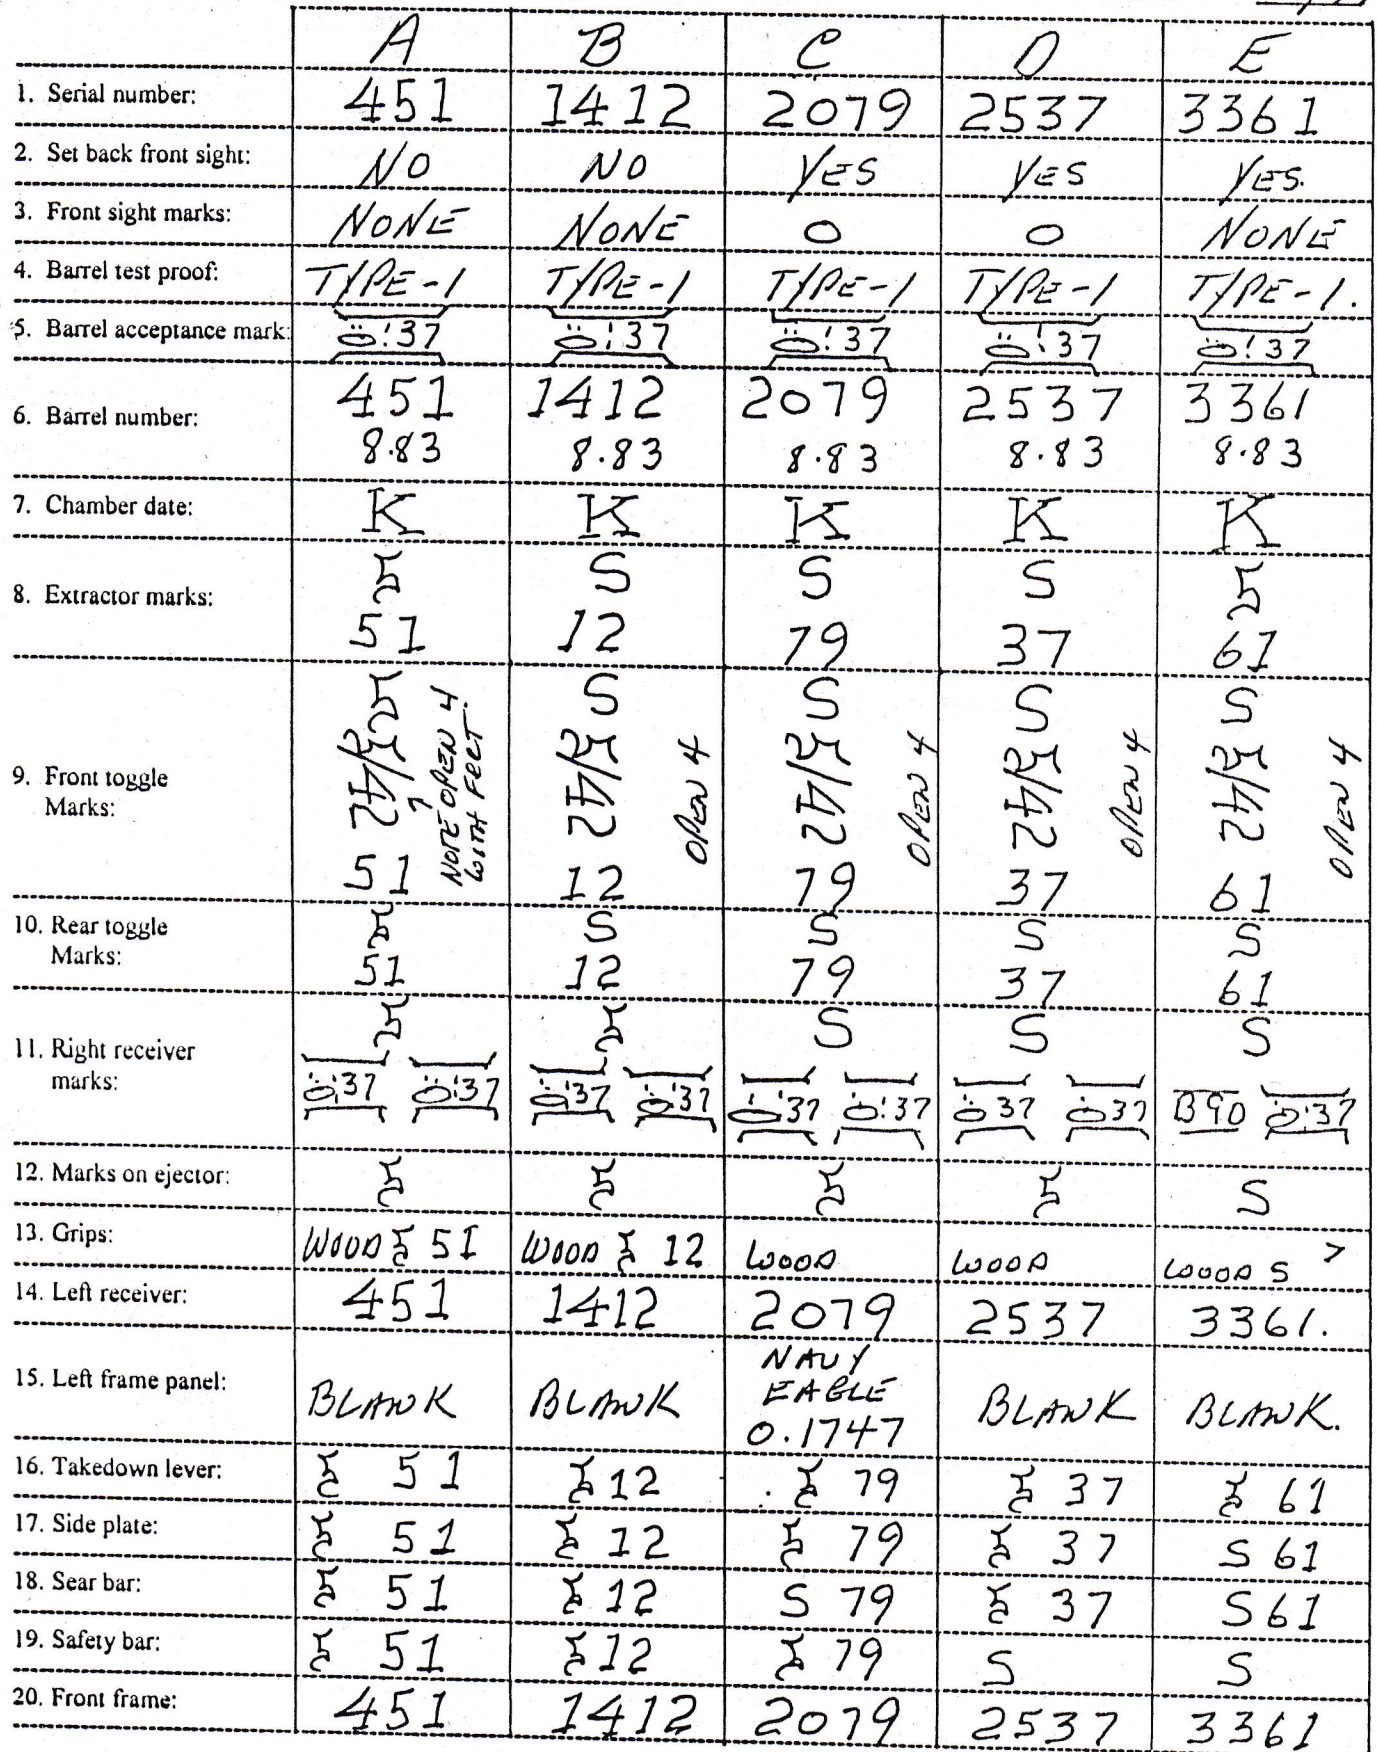 A B C D E
1. Serial number: 451 1412 2079 2537 3361
2. Set back front sight: NO NO YES YES YES.
3. Front sight marks: NONE NONE O O NONE
4. Barrel test proof: TYPE-1 TYPE-1 TYPE-1 TYPE-1 TYPE-1.
5. Barrel acceptance mark: 37 37 37 37 37
6. Barrel number: 451 1412 2079 2537 3361
8.83 8.83 8.83 8.83 8.83
7. Chamber date: K K K K K
8. Extractor marks: 5 S S S 5
51 12 79 37 61
9. Front toggle
Marks:
5 S S S S
42 42 42 42 42
NOTE OPEN 4
WITH FEET.
OPEN 4 OPEN 4 OPEN 4 OPEN 4
51 12 79 37 61
10. Rear toggle
Marks:
5 S S S S
51 12 79 37 61
11. Right receiver
marks:
5 5 S S S
37 37 37 37 37 37 37 37 B90 37
12. Marks on ejector: 5 5 5 5 S
13. Grips: WOOD 5 51 WOOD 5 12 WOOD WOOD WOOD S >
14. Left receiver: 451 1412 2079 2537 3361.
15. Left frame panel: BLANK BLANK NAVY EAGLE 0.1747 BLANK BLANK.
16. Takedown lever: 5 51 5 12 5 79 5 37 5 61
17. Side plate: 5 51 5 12 5 79 5 37 S 61
18. Sear bar: 5 51 5 12 S 79 5 37 S 61
19. Safety bar: 5 51 5 12 5 79 S S
20. Front frame: 451 1412 2079 2537 3361